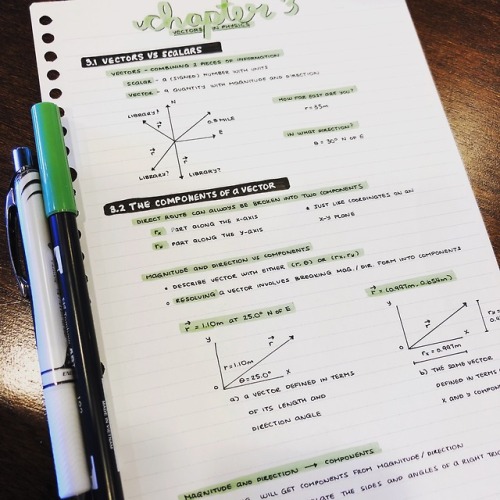 chapter 3
VECTORS IN PHYSICS
3.1 VECTORS VS SCALARS
VECTORS - COMBINING 2 PIECES OF INFORMATION
SCALAR - A (SIGNED) NUMBER WITH UNITS
VECTOR - A QUANTITY WITH MAGNITUDE AND DIRECTION
N
LIBRARY?
0.5 MILE
r⃗
E
r⃗
r⃗
LIBRARY?
LIBRARY?
HOW FAR EAST ARE YOU?
IN WHAT DIRECTION?
θ = 30° N OF E
3.2 THE COMPONENTS OF A VECTOR
DIRECT ROUTE CAN ALWAYS BE BROKEN INTO TWO COMPONENTS
rx PART ALONG THE X-AXIS
ry PART ALONG THE Y-AXIS
• JUST LIKE COORDINATES ON AN
X-Y PLANE
MAGNITUDE AND DIRECTION VS COMPONENTS
• DESCRIBE VECTOR WITH EITHER (r, θ) OR (rx, ry)
• RESOLVING A VECTOR INVOLVES BREAKING MAG./DIR. FORM INTO COMPONENTS
r⃗ = 1.10m AT 25.0° N OF E
y
r⃗
r = 1.10m
θ = 25.0°
x
0
a) A VECTOR DEFINED IN TERMS
OF ITS LENGTH AND
DIRECTION ANGLE
y
r⃗
x
0
rx = 0.997m
b) THE SAME VECTOR
DEFINED IN TERMS
X AND Y
MAGNITUDE AND DIRECTION → COMPONENTS
WILL GET COMPONENTS FROM MAGNITUDE/DIRECTION
THE SIDES AND ANGLES OF A RIGHT